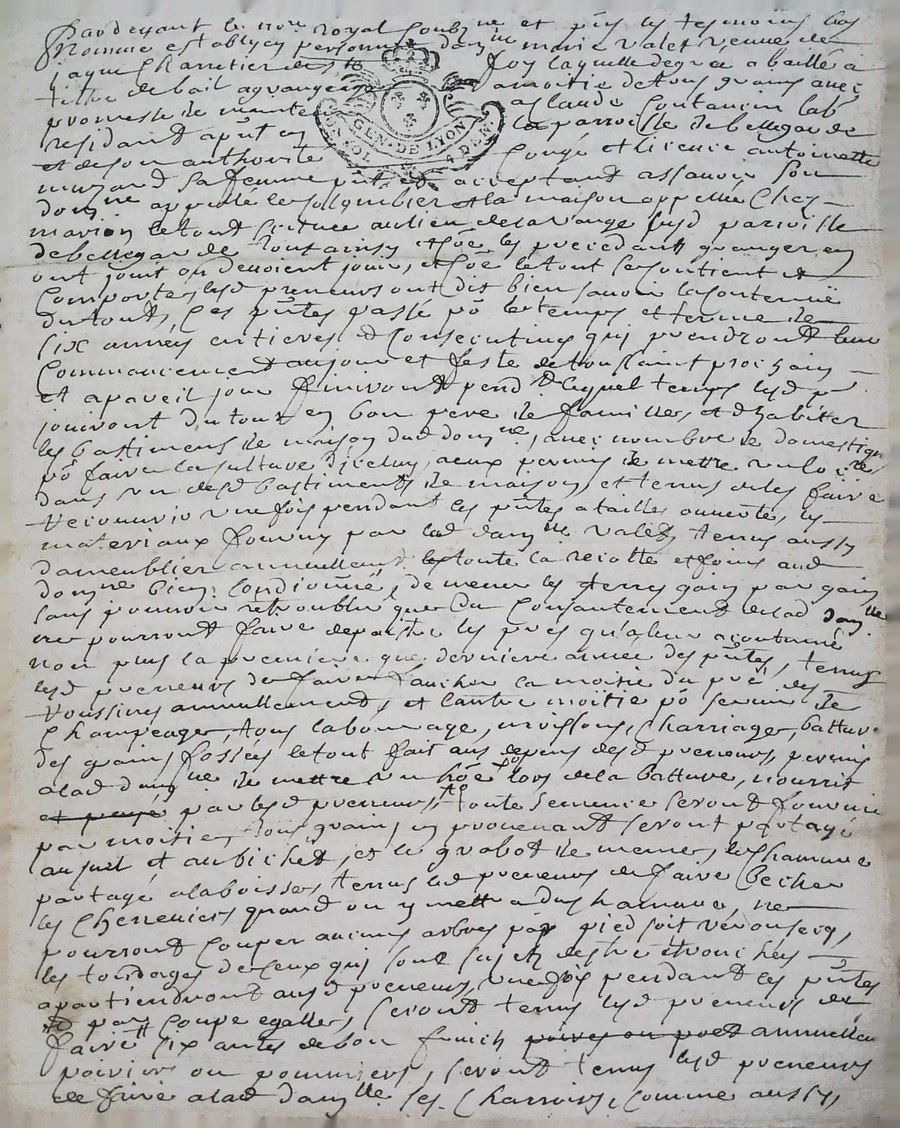 Pardevant le no.re royal soubz.ne et p{ñ}s les tesmoins bas
nommé establye personne dam.lle marie valet veuve de
jaque Charretier
foy laquelle de gre a baillé a
tiltre de bail a grangeage a moitie de tous grains avec
promesse de maintenir a Claude Coutancin lab.
residant a p{ñ}t en la parroisse de bellegarde
et de son authorite Congé et licence antoinette
muzard sa femme p{ñ}t et acceptant assavoir son
dom.ne appellé le Colombier et la maison appellée Chez
marion le tout scitué au lieu de la range susd parroisse
de bellegarde tout ainsy et c{õ}e les precedantz granger en
ont jouit ou devoient jouir, et c{õ}e le tout se contient et
Comporte, lesd preneurs ont dit bien savoir la contenüe
du tout, Ces p{ñ}tes passé p{õ} le temps et terme de
six années entieres et consecutives qui prendront leur
Commancement au jour et feste de toussaint prochain
et a pareil jour finiront pend.t lequel temps lesd p.
jouiront du tout en bon pere de familles, et d'habiter
les bastimens de maison dud dom.ne, avec nombre de domestique
p{õ} faire la culture d'iceluy, a eux permis de mettre un locat.re
dans un desd bastiments de maison, et tenus de les faire
recouvrir une fois pendant les p{ñ}tes a tailles ouverte, les
materiaux fourny par lad dam.lle valet, tenus aussy
d'ameublier annuellement toute la recolte et foins aud
dom.ne bien Conditionné, de mener les terres gain par gain
sans pouvoir retroubler que du Consantement de lad dam.lle
ne pourront faire depaistre les prés qu'a leur acoutumé
non plus la premiere que derniere année des p{ñ}tes, tenus
lesd preneurs de faire faucher la moitie du pré des
Voussines annuellement, et l'autre moitie p{õ} servir de
Champeage, tous labourage, moissons, Charriage, batture
des grains, fossées le tout fait aux depens desd preneurs, permis
a lad dam.lle de mettre un h{õ}e lors de la batture, nourrit
par lesd preneurs, toute semence seront fournie
par moitie, tous grains en provenant seront partagé
au suel et au bichet, et le grabot de meme, le Chanvre
partagé a la boisse, tenus lesd preneurs de faire becher
les Cheneviers quand on y mettra du Chanvre, ne
pourront Couper aucuns arbres par pied soit verd ou secq,
les tondages de ceux qui sont sujetz destre ébranchés
apartiendront ausd preneurs, une fois pendant les p{ñ}tes
par Coupe egalle, seront tenus lesd preneurs de
faire six antes de bon fruich annuellem
poiriers ou pommiers, seront tenus lesd preneurs
de faire a lad dam.lle ses Charrois, Comme aussy,
GEN. DE LYON